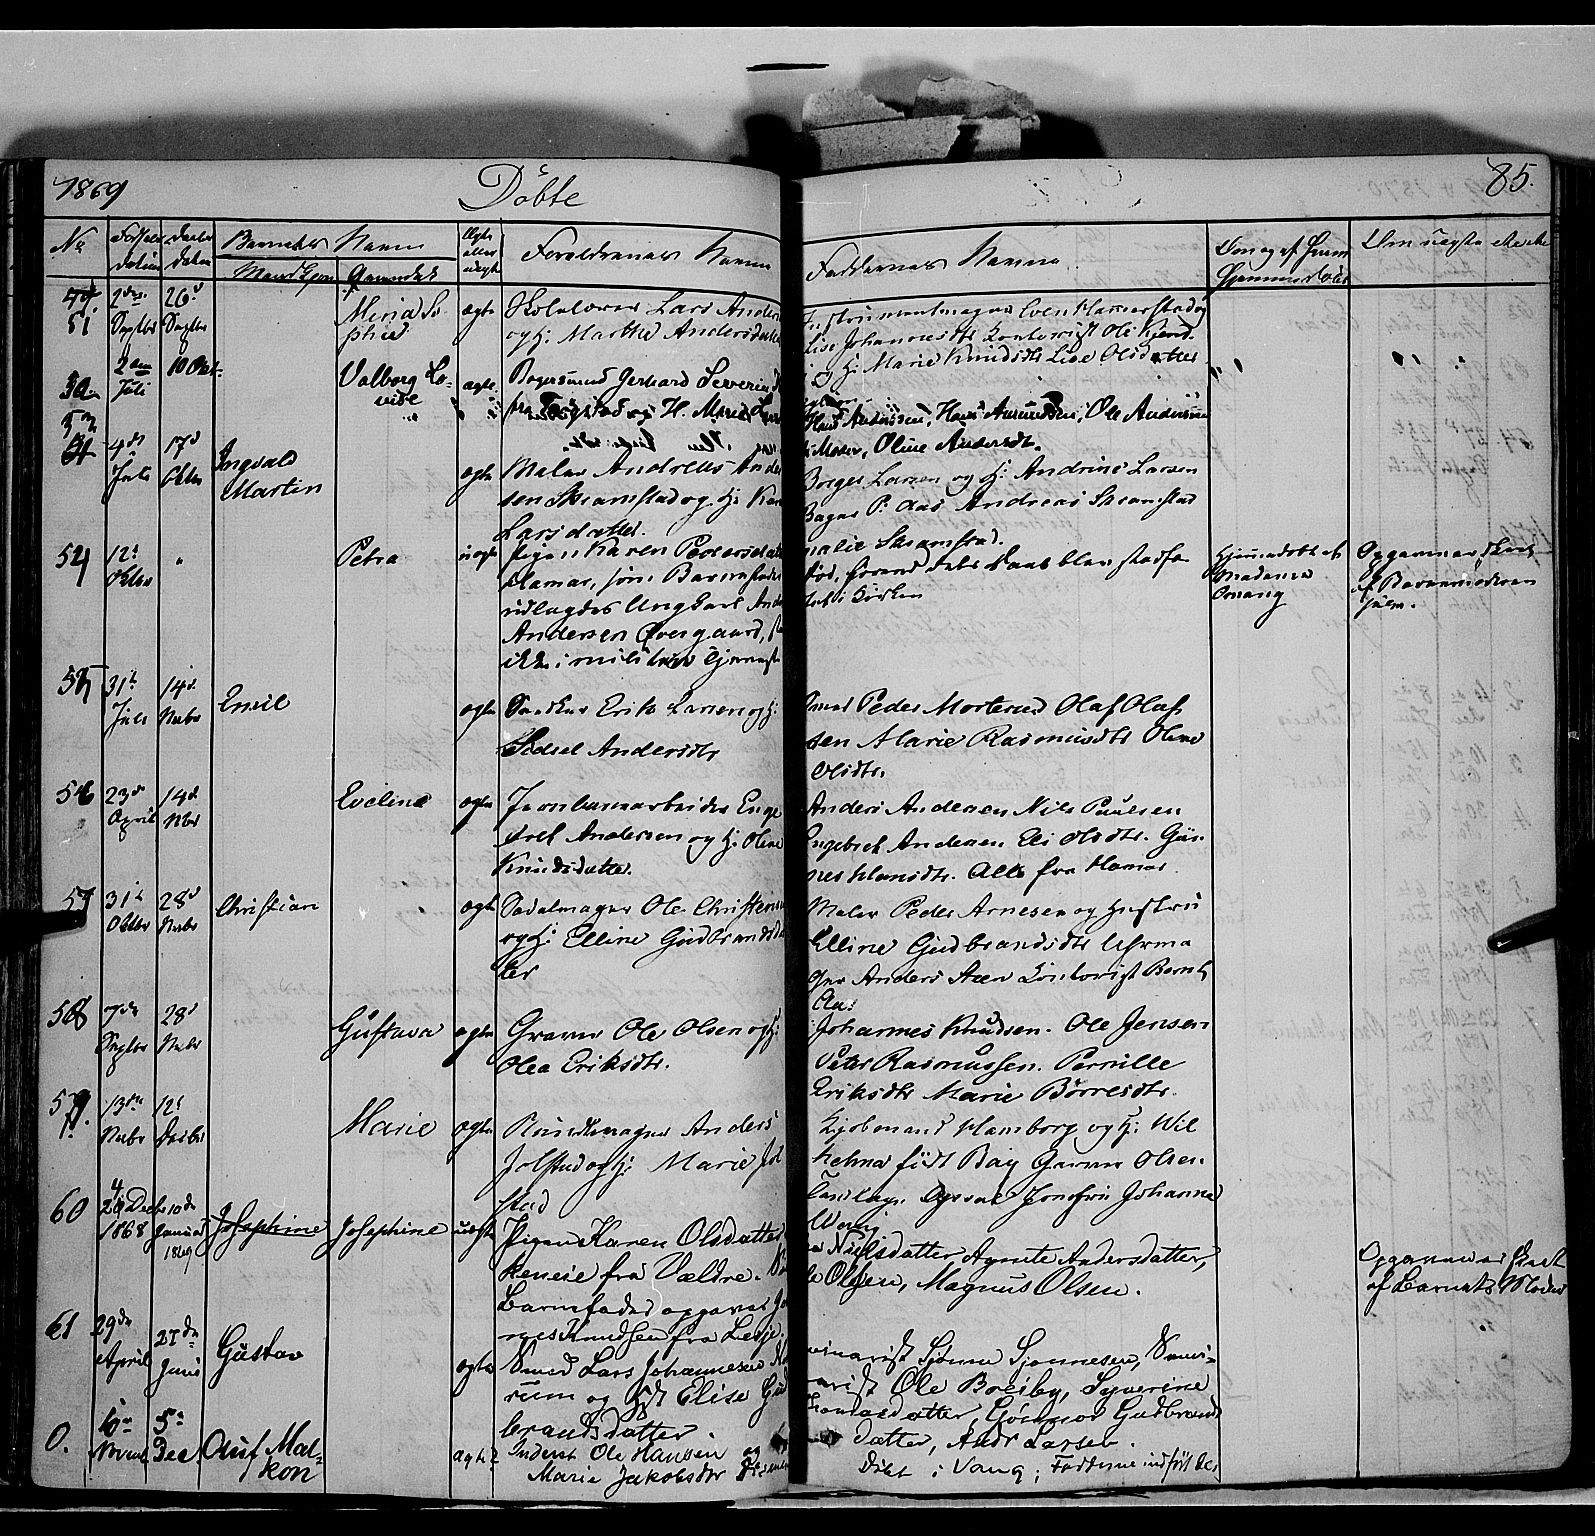 1869 Döbte 85.
No Fødsels datum Daabs datum Barnets Navn Ægte eller uægte Forældrenes Navne Faddernes Navne Om uægte
Mandkjøn Qvindekjøn
51 Septbr 26d Septbr Mina Sophie ægte Skolelærer Lars Anders
og H. Marthe Andersdatter
Instrumentmager Even Hammerstad og
Lise Johannesdtr Kontorist Ole
H. Marie Knudsdtr Lise Olsdatter
52 2den Juli 10 Okt. Valborg Lovise ægte Gerhard Severin
og H. Marie
Hans Andersen, Hans Amundsen, Ole Andersen
Moser, Oline Andersdt.
53 4de Juli 17d Oktbr Ingvald Martin ægte Maler Andreas Ander
sen Skramstad og H. Kare
Larsdatter.
Borger Larsen og H. Andrine Larsen
Bager P. Aas Andreas Skramstad
malie Skramstad.
54 12t Oktbr " Petra uægte Pigen Karen Pedersdatter
Hamar, som Barnefader
udlagdes Ungkarl And
Andersen Øvergaard,
ikke i militær Tjeneste
død, førend dets Daab blev stadfæ
stet i Kirken
Hjemmedøbt af Madame Omang
Opgaven er skeet
af Barnemoderen
selv.
55 31te Juli 14d Novbr Emil ægte Snedker Erik Larsen og H.
Sidsel Andersdtr
Smed Peder Mortensen Olaf Olaf
sen Marie Rasmusdtr Oline
Olsdtr.
56 23d April 14d Nvbr Eveline ægte Jernbanearbeider Enge
bret Andersen og H. Oline
Knudsdatter.
Anders Andersen Nils Paulsen
Engebret Andersen Eli Olsdtr. Gun
nes Hansdtr. Alle fra Hamar
57 31te Oktbr 28d Novbr Christian ægte Sadelmager Ole Christens
og H. Elline Gudbrandsda
ter
Maler Peder Arnesen og Hustru
Elline Gudbrandsdtr Uhrma
ger Anders Aaen Kontorist Bernt
Aas
58 7de Septbr 28d Novbr Gustava ægte Graver Ole Olsen og H.
Olea Eriksdtr.
Johannes Knudsen. Ole Jensen
Peter Rasmussen. Pernille
Eriksdtr Marie Börresdtr.
59. 13de Novbr 12te Decbr Marie ægte Bundtmager Anders
Jolstad og H. Marie Jol
stad
Kjøbmand Hamborg og H. Wil
helma født Bay Garver Olsen
Jomfru Johanne
60 24 Decbr 1868 10de Januar 1869 Josephine Josephine uægte Pigen Karen Olsdatter
fra Vældre.
Barnefader opgaves Jo
nes Knudsen fra Lesje.
Nielsdatter Agnete Andersdatter,
Ole Olsen, Magnus Olsen.
Opgaven er skeet
af Barnets Moder
61 29de April 27de Juni Gustav ægte Smed Lars Johannesen
rum og Hst Elise Gud
brandsdatter.
Seminarist Sjönne Sjonnesen, Semi-
narist Ole Breiby, Syverine
Thomasdatter, Gunnor Gudbrands
datter, Andr Larsen.
0. 6te Novemb 5te Dec Oluf Markon ægte? Inderst Ole Hansen og
Marie Jakobsdtr
Döbt i Vang; Fadderne indført der